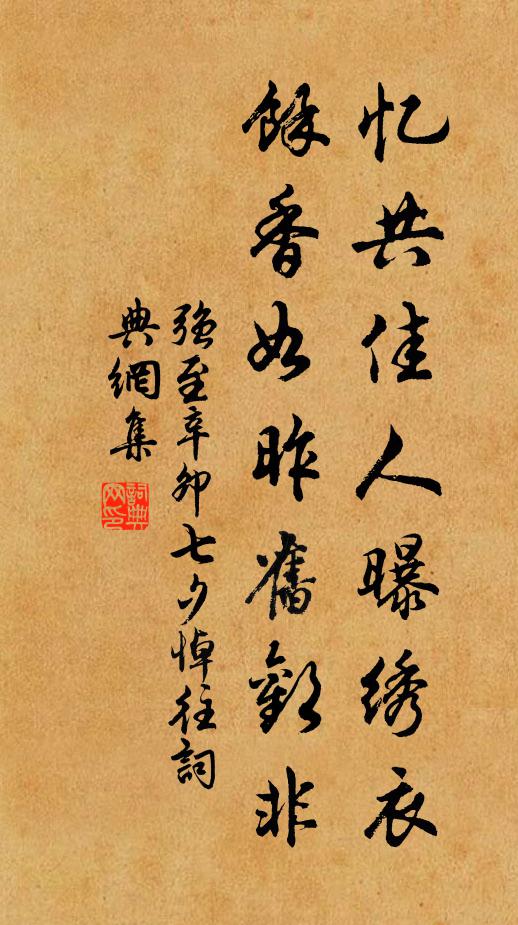 忆共佳人曝绣衣
馀香如昨旧歡非
强至辛卯七夕悼往詞
典網集
詞典
网印